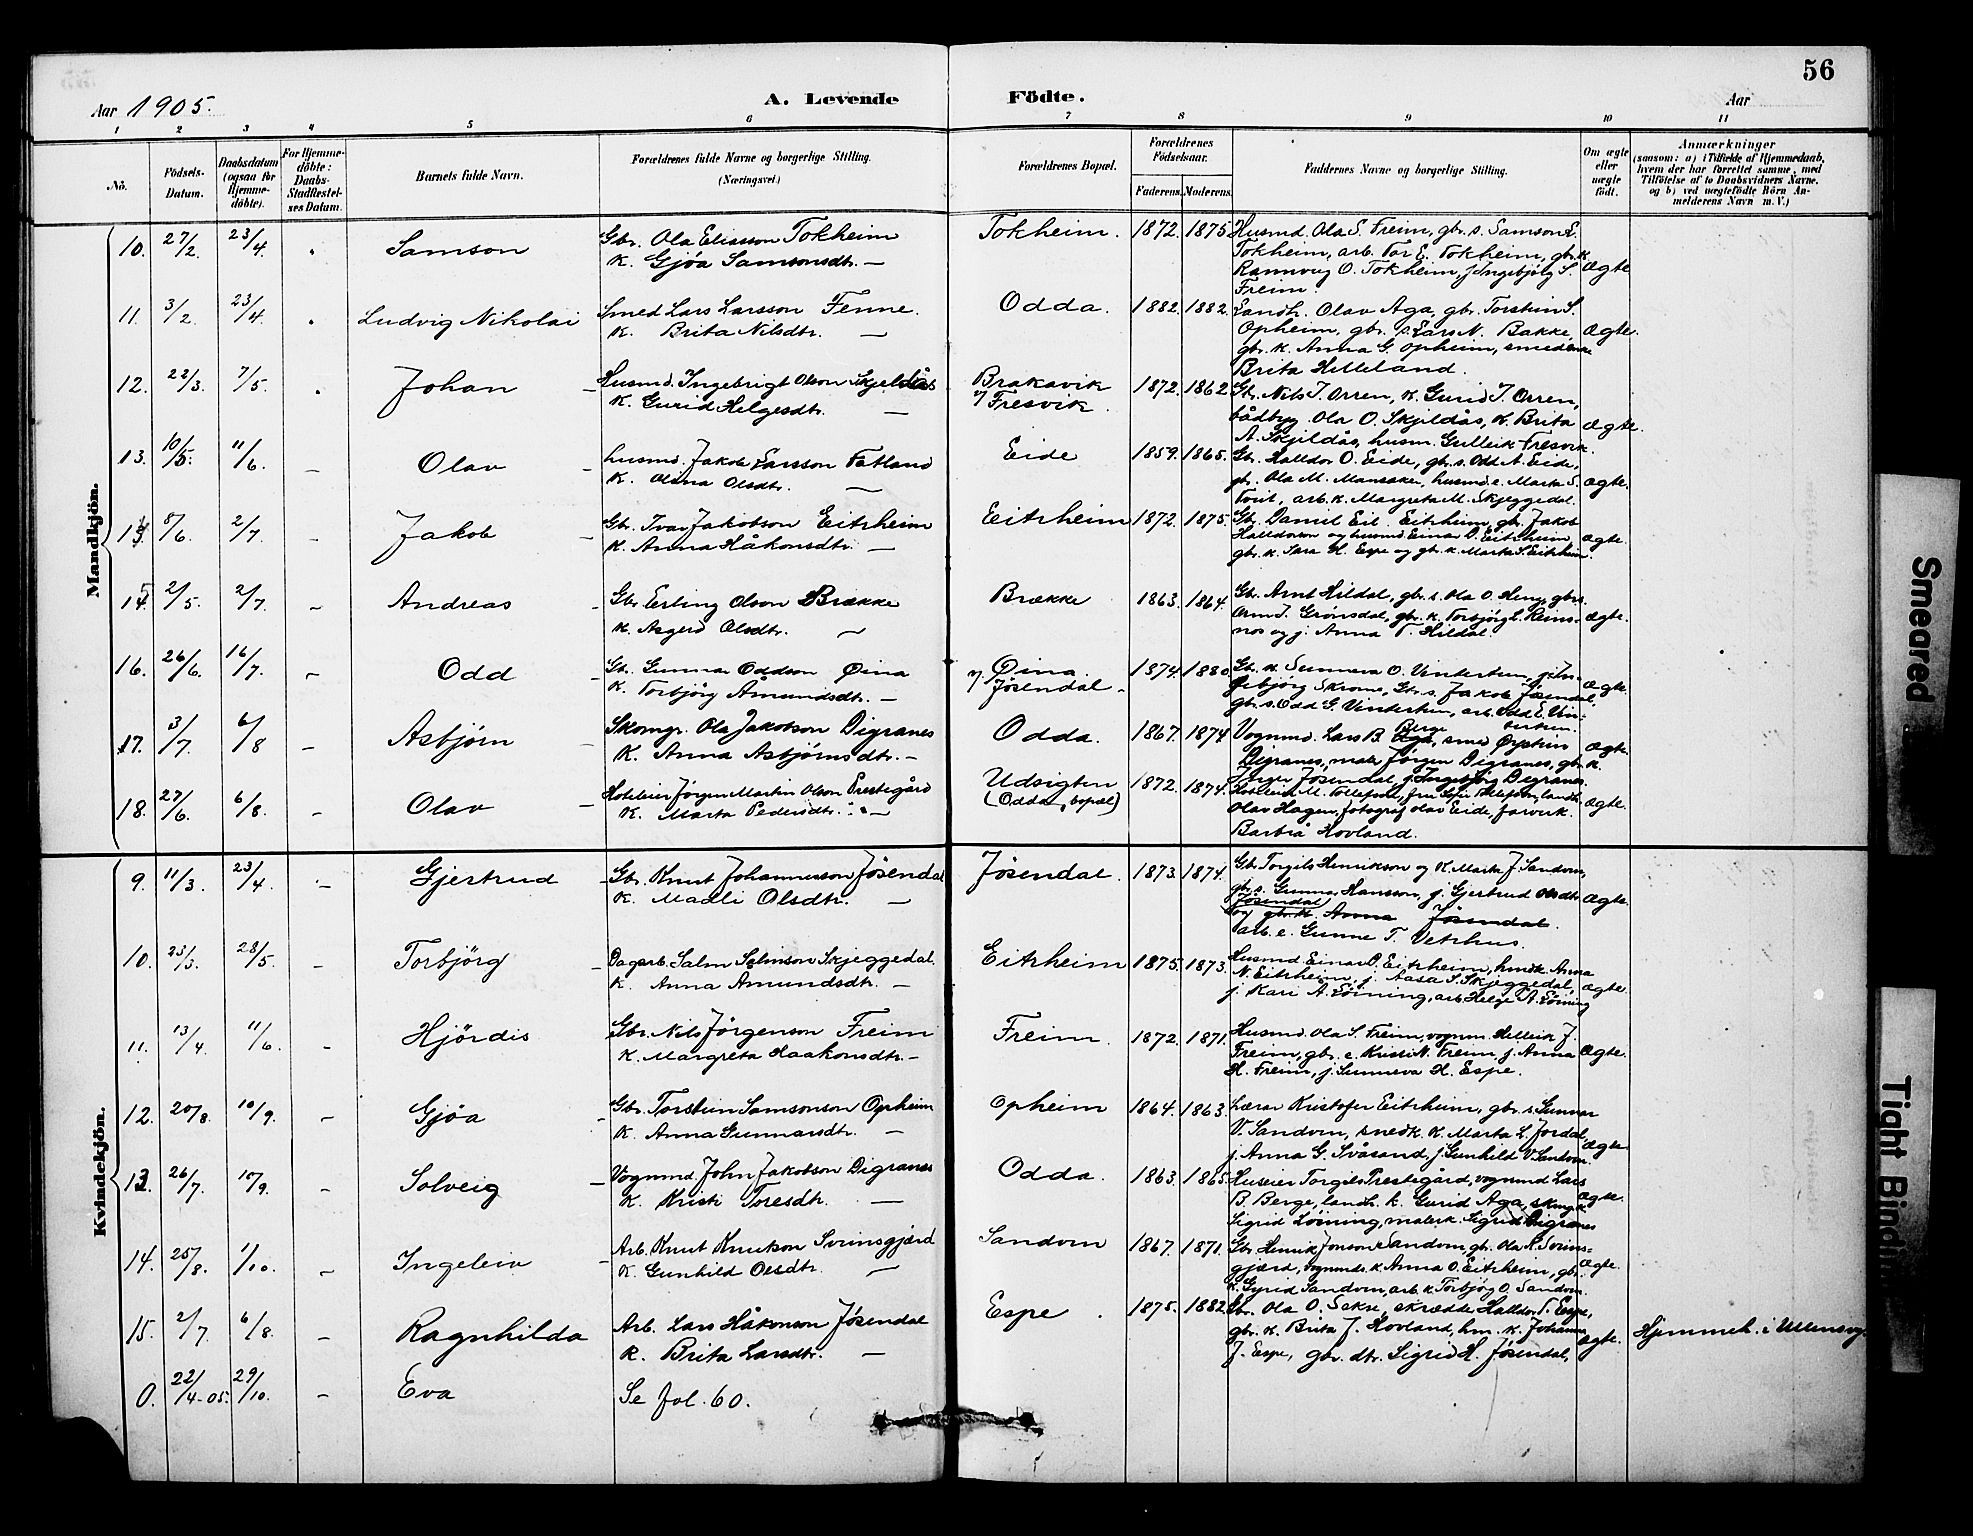 56
Aar 1905.
A. Levende Födte.
Aar
1 2 3 4 5 6 7 8 9 10 11
No.
Födsels-Datum.
Daabsdatum (ogsaa for Hjemme-döbte).
For Hjemme-döbte: Daabs-Stadfæstel-ses Datum.
Barnets fulde Navn.
Forældrenes fulde Navne og borgerlige Stilling. (Næringsvei.)
Forældrenes Bopæl.
Forældrenes Födselsaar.
Faderens. Moderens.
Faddernes Navne og borgerlige Stilling.
Om ægte eller uægte födt.
Anmærkninger
(saasom: a) i Tilfælde af Hjemmedaab, hvem der har forrettet samme, med Tilföielse af to Daabsvidners Navne, og b) ved uægtefödte Börn An-melderens Navn m. V.)
Mandkjön.
10. 27/2. 23/4. Samson
Gbr. Ola Eliasson Tokheim
K. Gjøa Samsonsdtr. —
Tokheim. 1872. 1875.
Husmd. Ola S. Freim, gbr. s. Samson E.
Tokheim, arb. Tor E. Tokheim, gbr. k.
Rannveig O. Tokheim, j. Ingebjörg S.
Freim.
Ægte
11. 3/2. 23/4. Ludvig Nikolai
Smed Lars Larsson Fenne.
K. Brita Nilsdtr. —
Odda. 1882. 1882.
Landh. Olav Aga, gbr. Torstein S.
Opheim, gbr. s. Lars N. Bakke,
gbr. k. Anna G. Opheim,
Brita Helleland.
Ægte.
12. 22/3. 7/5. Johan
Husmd. Ingebrigt Olson Skjeldås
K. Gurid Helgesdtr. —
Brakavik
y Fresvik. 1872. 1862
Gbr. Nils J. Orren, K. Gurid J. Orren,
bådbyg. Ola O. Skjeldås, K. Brita
A. Skjeldås, husm. Gulleik Fresvik.
Ægte.
13. 10/5. 11/6. Olav
husmd. Jakob Larsson Fatland
K. Olina Olsdtr. —
Eide 1859. 1865.
Gbr. Halldor O. Eide, gbr. s. Odd A. Eide,
gbr. Ola M. Mansaker, husmd. e. Marta S.
Tveit, arb. k. Margreta M. Skjeggedal.
Ægte.
14. 8/6. 2/7. Jakob
Gbr. Ivar Jakobson Eitrheim
K. Anna Håkonsdtr. —
Eitrheim 1872. 1875.
Gbr. Daniel Eil. Eitrheim, gbr. Jakob
Halldorson og husmd. Einar O. Eitrheim,
gbr. k. Sara H. Espe og gbr. k. Marta S. Eitrheim.
Ægte.
15. 2/5. 2/7. Andreas
Gbr. Erling Olson Brække
K. Asgerd Olsdtr. —
Brække 1863. 1864.
Gbr. Arnt Hildal, gbr. s. Ola O. Heng, gbr. s.
Orm J. Grønsdal, gbr. k. Torbjörg L. Reins-
nos og j. Anna T. Hildal.
Ægte.
16. 26/6. 16/7. Odd
Gbr. Gunnar Oddson Øina
K. Torbjörg Åmundsdtr. —
Øina
y. Jösendal 1874. 1880.
Gbr. k. Sunneva O. Vintertun, j. In-
gebjörg Skrome, Gbr. s. Jakob Jösendal,
gbr. s. Odd G. Vintertun, arb. Odd E. Vin-
tertun.
Ægte.
17. 3/7. 6/8 Asbjørn
Skomgr. Ola Jakobson Digranes
K. Anna Asbjørnsdtr. —
Odda. 1867. 1874
Vognmd. Lars B. Berge, smed Øystein
Digranes, maler Jörgen Digranes, gbr. k.
Inger Jösendal, j. Ingebjörg Digranes.
Ægte.
18. 27/6. 6/8. Olav
Hoteleier Jørgen Martin Olson Prestegård
K. Marta Pedersdtr. —
Udsigten
(Odda, bopæl) 1872. 1874.
Hoteleier M. Tollefsen, fru Tollefsen, landh.
Olav Hagen, fotograf Olav Eide, farverk.
Barbrå Hovland.
Ægte.
Kvindekjön.
9. 11/3. 23/4. Gjertrud
Gbr. Knut Johannesson Jösendal
K. Madli Olsdtr. —
Jösendal. 1873. 1874.
Gbr. Torgils Henrikson og K. Marta J. Sandven,
gbr. s. Gunnar Hansson, j. Gjertrud Olsdtr.
(Jösendal) og gbr. k. Anna Jösendal.
arb. e. Gunne T. Vetrhus.
Ægte.
10. 23/3. 28/5. Torbjörg
Dagarb. Salm. Salmson Skjeggedal.
K. Anna Amundsdtr. —
Eitrheim 1875. 1873.
Husmd. Einar O. Eitrheim, hmdk. Anna
N. Eitrheim, j. Aasa S. Skjeggedal,
j. Kari A. Löining, arb. Helge A. Löining
ægte.
11. 13/4. 11/6. Hjördis
Gbr. Nils Jörgenson Freim
K. Margreta Haakonsdtr. —
Freim. 1872. 1871.
Husmd. Ola S. Freim, vognm. Helleik J.
Freim, gbr. e. Kristi N. Freim, j. Anna
H. Freim, j. Sunneva H. Espe.
Ægte.
12. 20/8. 10/9. Gjøa
Gbr. Torstein Samsonson Opheim
K. Anna Gunnarsdtr. —
Opheim 1864. 1863.
Lærar Kristofer Eitrheim, gbr. s. Gunnar
V. Sandven, snedk. K. Marta L. Jordal,
j. Anna G. Svåsand, j. Gunhild V. Sandven.
Ægte
13. 26/7. 10/9. Solveig
Vognmd. John Jakobson Digranes
K. Kristi Toresdtr. —
Odda. 1863. 1865.
Huseier Torgils Prestegård, vognmd Lars
B. Berge, landh. k. Gurid Aga,
Sigrid Löining, malerk. Sigrid Digranes
Ægte.
14. 25/8. 1/10. Ingeleiv
Arb. Knut Knutson Svinsgjærd
K. Gunhild Olsdtr. —
Sandven 1867. 1871.
Gbr. Henrik Jonson Sandven, gbr. Ola K. Svins-
gjærd, vognmds. k. Anna O. Eitrheim, gbr.
k. Gyrid Sandven, arb. k. Torbjörg O. Sandven.
Ægte.
15. 2/7. 6/8. Ragnhilda
Arb. Lars Håkonson Jösendal
K. Brita Larsdtr. —
Espe. 1875. 1882.
Gbr. Ola O. Sekse, skrædder Halldor T. Espe,
gbr. k. Brita J. Hovland, hm. k. Johanna
J. Espe, gbr. dtr. Sigrid H. Jösendal,
Ægte.
Hjemmeh. i Ullensvg.
0. 22/4-05. 29/10. Eva
Se fol. 60.
Smeared
Tight Bindin